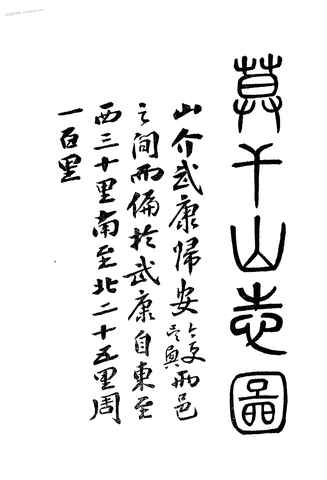 莫干山志圖
山介武康歸安今改吳興兩邑
之間而偏於武康自東至
西三十里南至北二十五里周
一百里